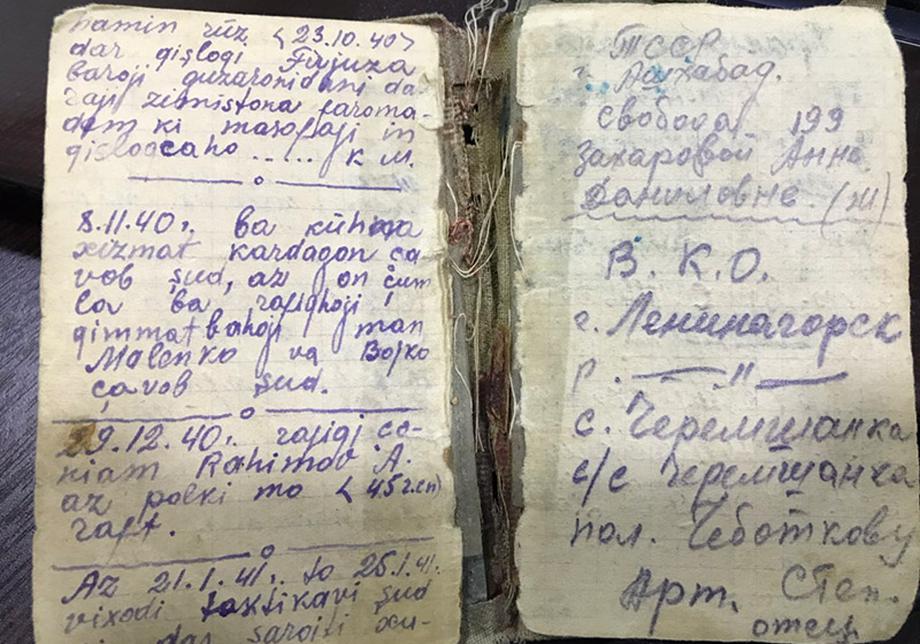 hamin rūz <23.10.40>
dar qişloqi Firjuza
baroji guzaronidani da-
raji zimistona faroma-
dem ki masofaji in
qişloqcaho ...... K M.
8.11.40 г. ba kūhna
xizmat kardagon ça
vob şud, az on çum
la ba rafiqhoji
qimmatbahoji man
Malenko va Bojko
çavob şud.
29.12.40 г. rafiqi ço-
niam Rahimov A.
az polki mo <45 г.сп>
raft.
Az 21.1.41 г. to 25.1.41.
vixodi taktikavi şud
dar sarojiti xu-
ТССР
г. Ашхабад.
Свобода 199
Захаровой Анне
Даниловне. (Ж)
В. К. О.
г. Лениногорск
р. —— " ——
с. Черемшанка
с/с Черемшанка
пол. Чеботкову
Арт. Степ.
отец